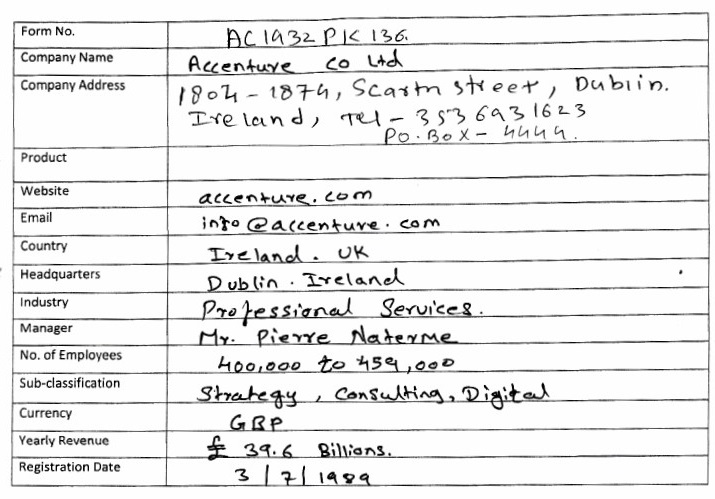 Form No. AC1932PK136.
Company Name Accenture co Ltd
Company Address 1804 - 1874, Scarth street, Dublin.
Ireland, Tel - 353 6931623
PO.BOX - 4444.
Product
Website accenture.com
Email info@accenture.com
Country Ireland. UK
Headquarters Dublin. Ireland
Industry Professional Services.
Manager Mr. Pierre Naterme
No. of Employees 400,000 to 459,000
Sub-classification Strategy, Consulting, Digital
Currency GBP
Yearly Revenue £ 39.6 Billions.
Registration Date 3/7/1989